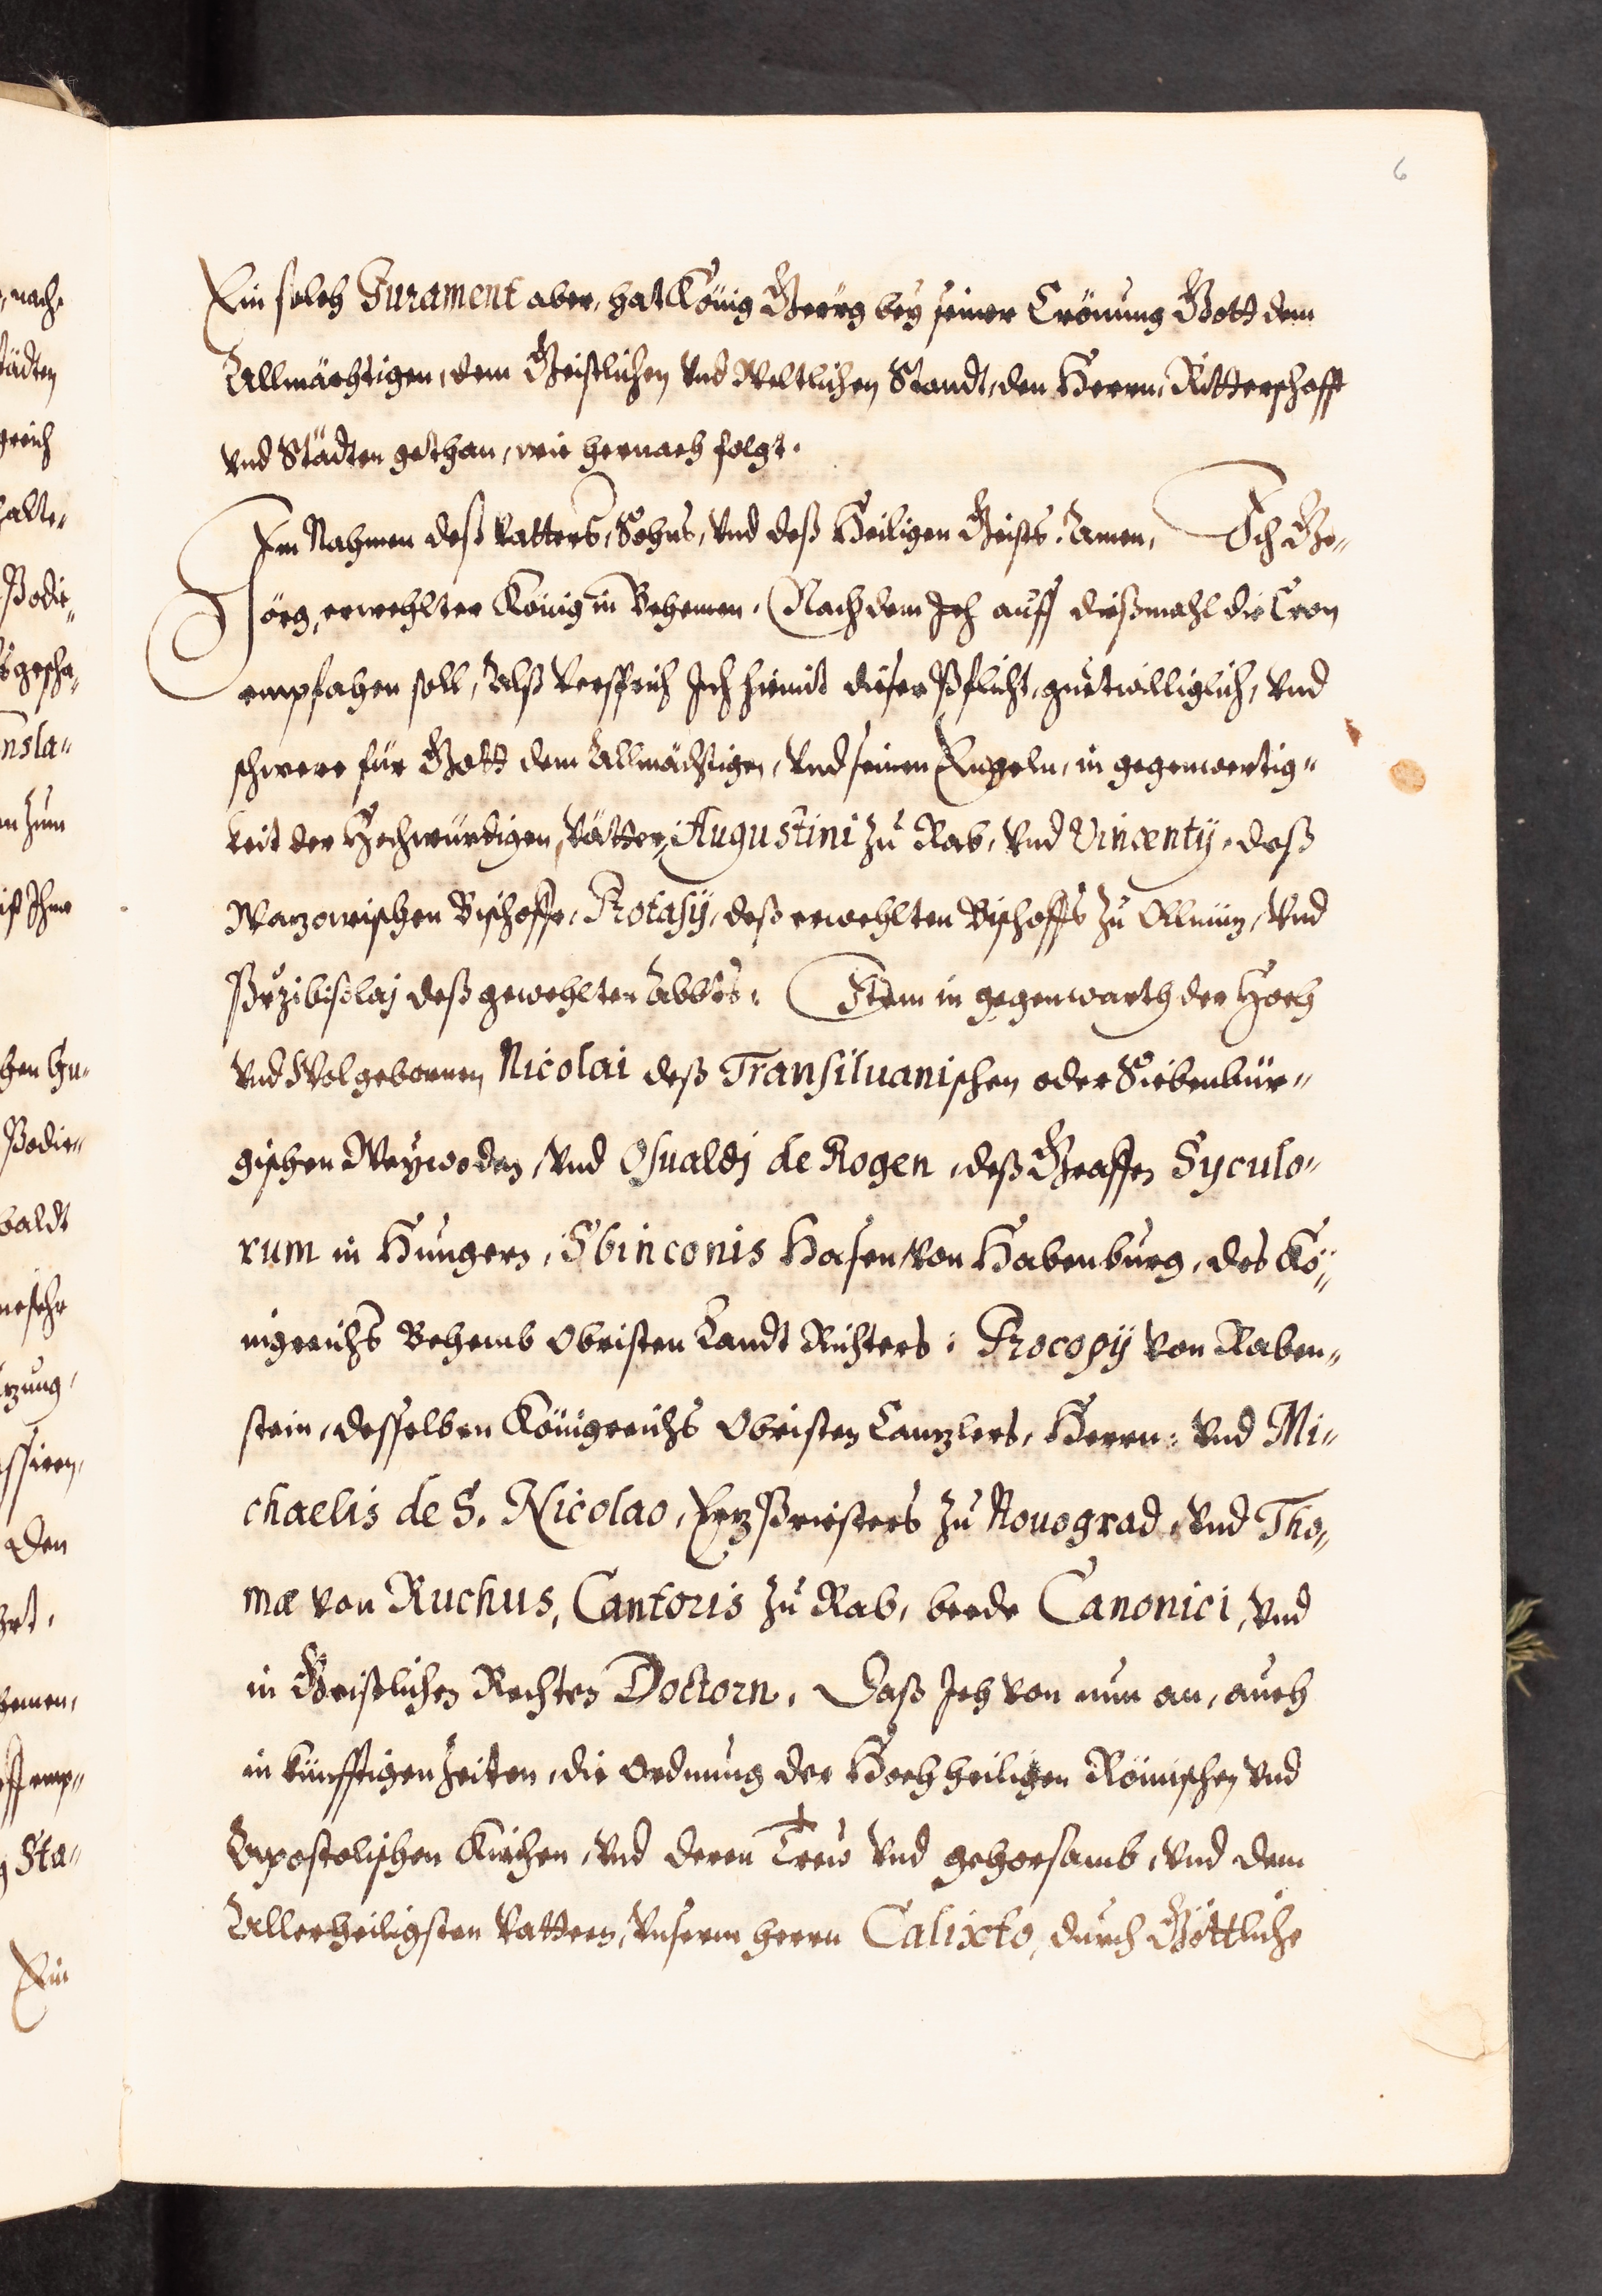 6
Ein solch Jurament aber, hat König Georg bey seiner Crönung Gott dem
Allmächtigen, dem Geistlichen vnd Weltlichen Standt, den Herrn, Ritterschafft
vnd Städten gethan, wie hernach folgt.
Im Nahmen deß Vatters, Sohns, vnd deß Heiligen Geists. Amen. Ich Ge„
örg, erwehlter König in Behemen. Nach dem Ich auff dießmahl die Cron
empfahen soll, Alß versprich Ich hiemit dieser Pflicht, guetwilliglich, vnd
schwere für Gott dem Allmächtigen, vnd seinen Engeln, in gegenwertig„
keit der Hochwürdigen, Vätter, Augustini zu Rab, vnd Vincentij, deß
Wazowischen Bischoffe, Protasij, deß erwehlten Bischoffs zu Ollmüz, vnd
Przibislaj deß gewehlten Abbts: Item in gegenwarth der Hoch
vnd Wolgebornen Nicolai deß Transiluanischen oder Siebenbür„
gischen Weywoden, vnd Osualdj de Rogen, deß Graffen Syculo„
rum in Hungern, Sbinconis Hasen von Hasenburg, des Kö„
nigreichs Behemb Obristen Landt Richters: Procopij von Raben„
stein, desselben Königreichs Obristen Canzlers, Herrn: vnd Mi„
chaelis de S. Nicolao, Erz Priesters zu Nouograd, vnd Tho„
mæ von Ruchus, Cantoris zu Rab, beede Canonici, vnd
in Geistlichen Rechten Doctorn. Daß Ich von nun an, auch
in künfftigen Zeiten, die Ordnung der Hochheiligen Römischen vnd
Apostolischen Kirchen, vnd deren Trew vnd gehorsamb, vnd dem
Allerheiligsten Vattern, Vnserm herrn Calixto, durch Göttliche